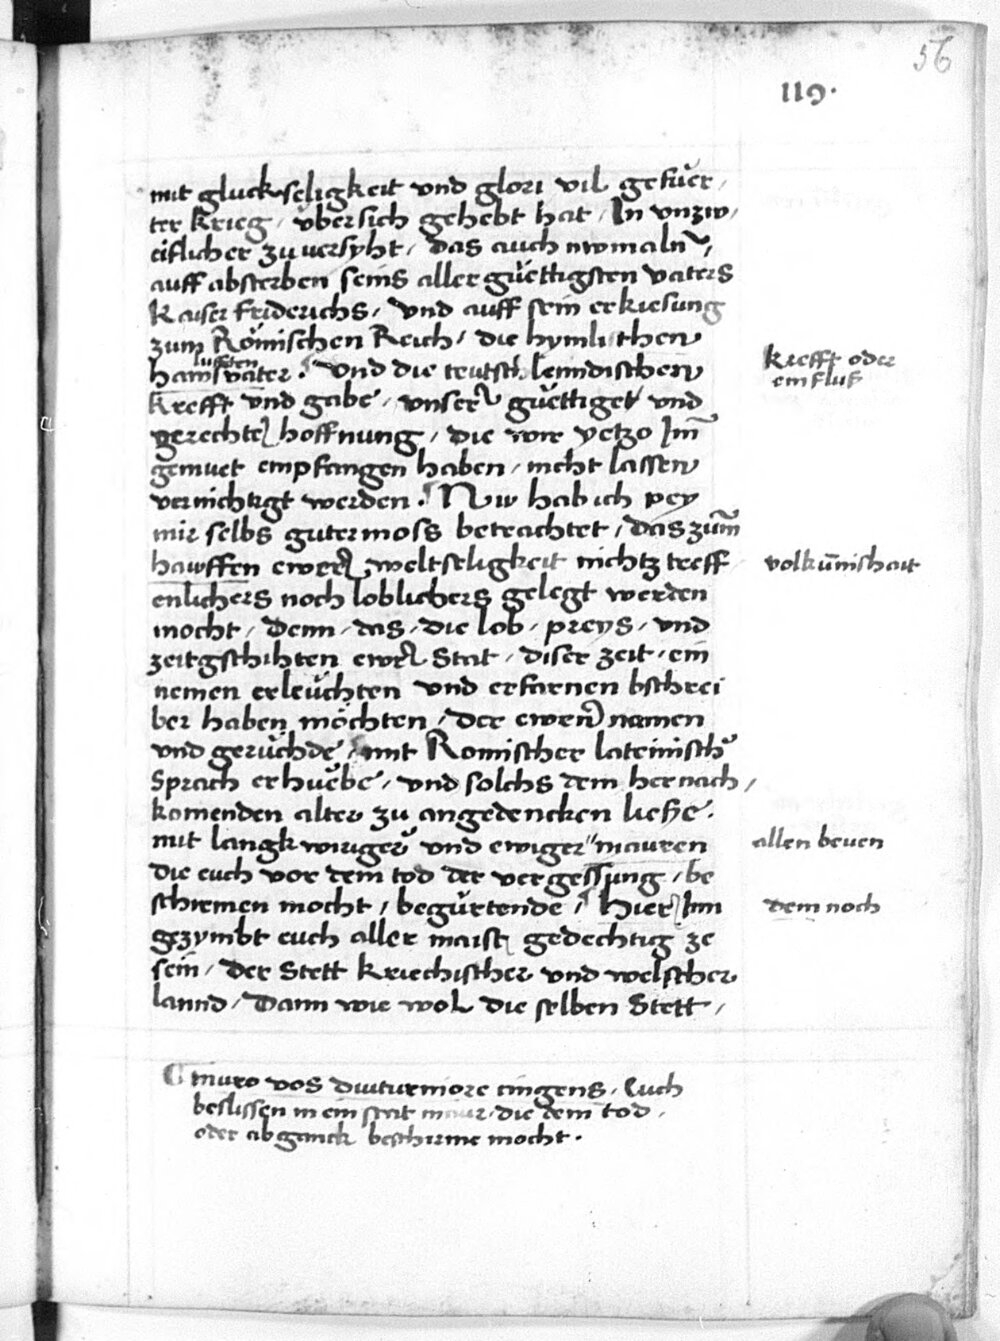 56
119.
mit gluckseligkeit vnd glori vil gefüer,
ter krieg, übersich gehebt hat, In vnzw,
eiflicher zuuersyht, das auch nwmaln,
auff absterben seins aller güettigsten vaters
Kaiser friderichs, vnd auff sein erkiesung
zum Römischen Reich, die hymlischen
lufften
hawsväter. Vnd die teutsch lenndischen
krefft oder
einfluß
krefft vnd gabe, vnser güettiget vnd
gerechte hoffnung, die wir yetzo Im
gemuet empfangen haben, nicht lassen
vernichtigt werden. Nw hab ich pey
mir selbs guter moss betrachtet, das zum
hawffen ewer weltseligkeit nichtz treff
volkumshait
enlichers noch loblichers gelegt werden
mocht, Denn, das, die lob, preys, vnd
zeitgschihten ewer Stat, diser zeit, ein
nemen erleüchten vnd erfarnen bschrei
ber haben möchten, der ewern namen
vnd gerüchde, mit Romischer lateinisch
Sprach erhuebe, vnd solchs dem hernach,
komenden alter zu angedencken liesse.
mit langkwiriger vnd ewiger mauren
allen beuen
die euch vor dem tod der vergessung, be
schiemen mocht, begürtende, Hier Inn
dem noch
gezymbt euch aller maist gedechtig ze
sein, der Stett kriechischer vnd welscher
lannd, Dann wie wol die selben Stett,
muro vos diuturniore cingens. Euch
beslissen in ein stat maur, die dem tod,
oder abganck beschirme mocht.